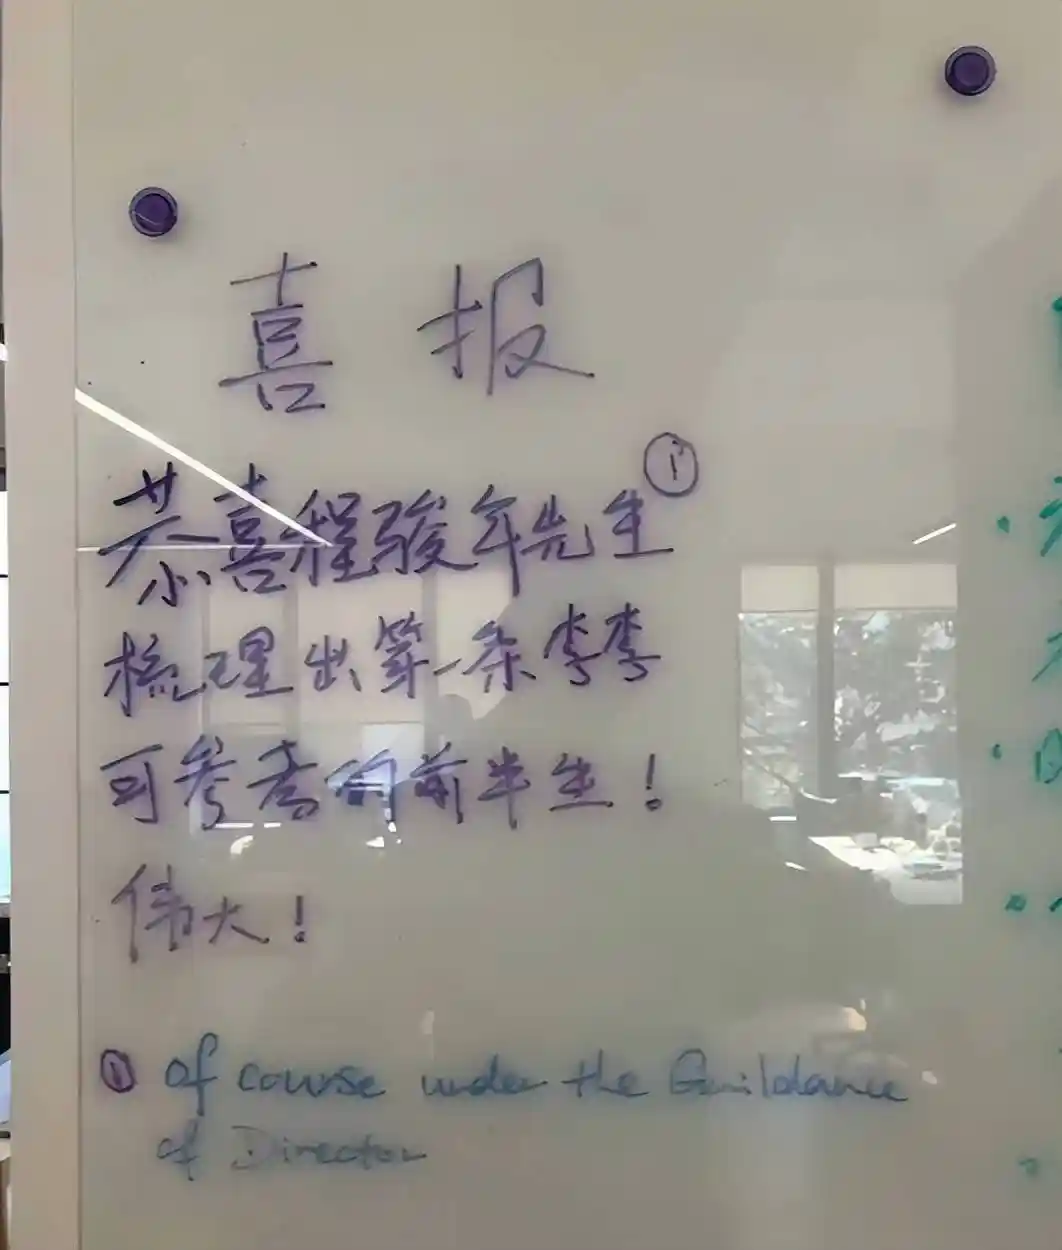 喜报
恭喜程骏年先生①
梳理出第一条李李
可参考的前半生!
伟大!
① of course under the Guildance
of Director